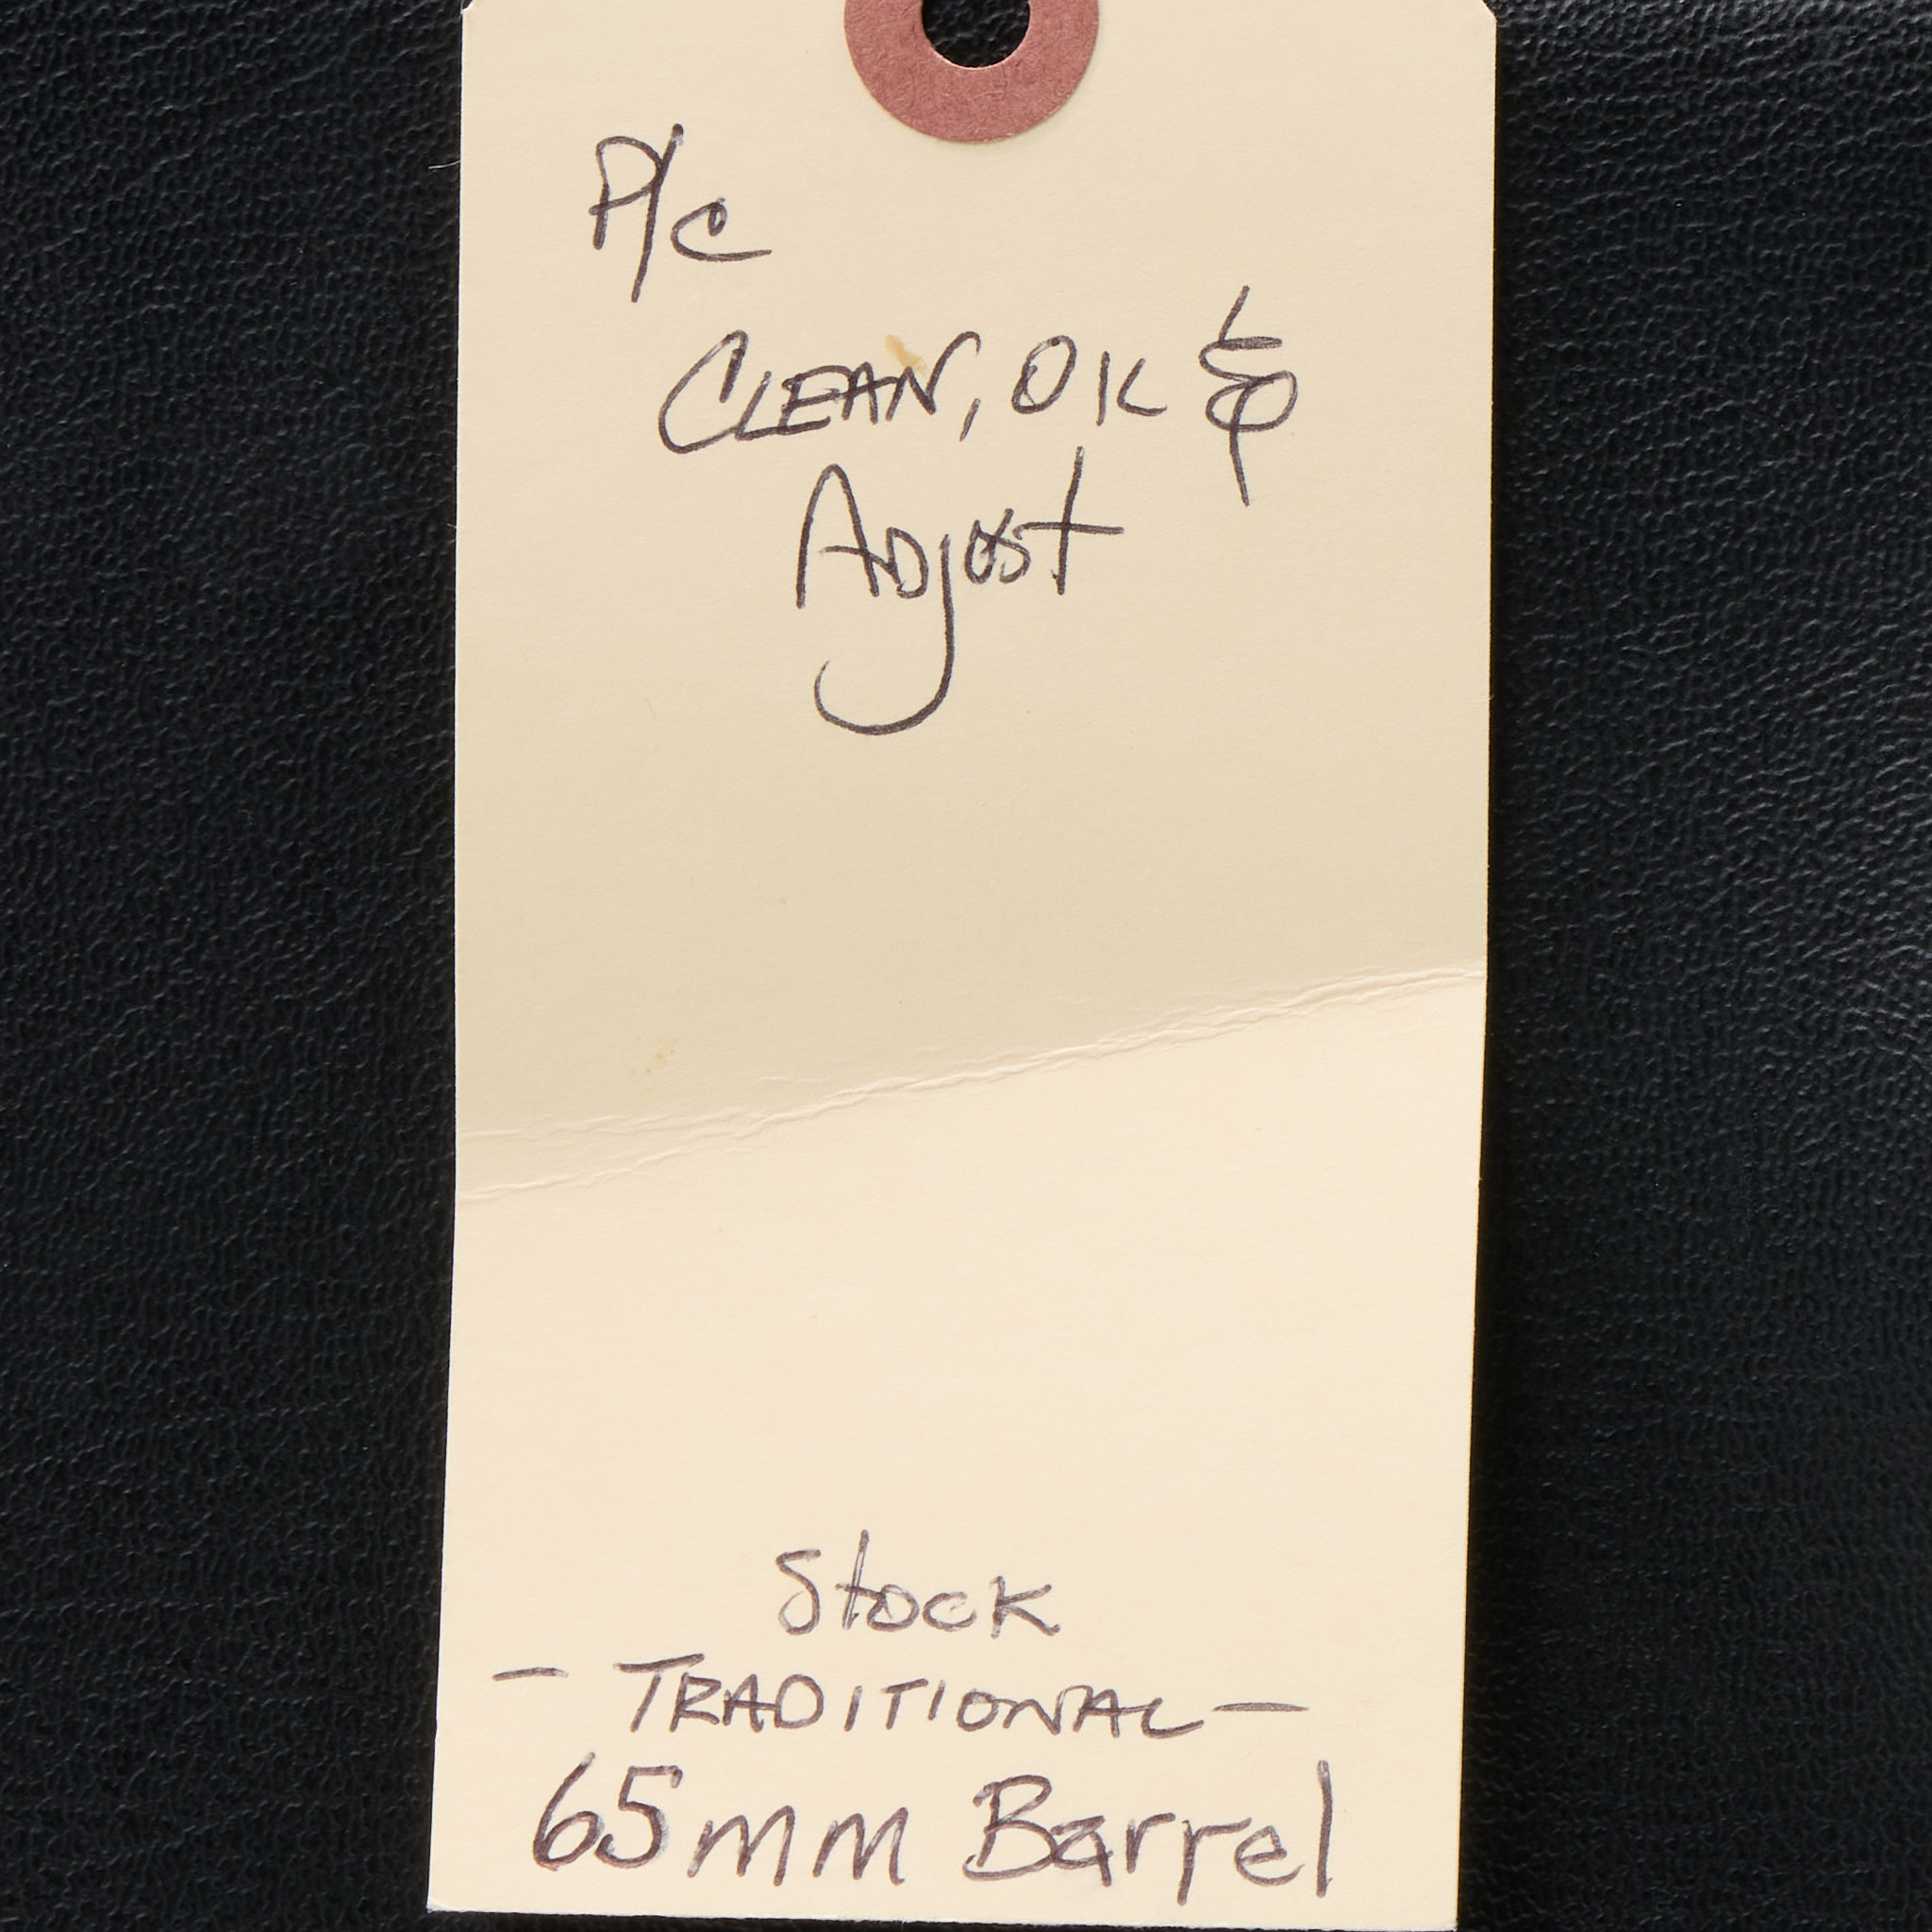 P/c
CLEAN, OK &
Adjust
Stock
- TRADITIONAL -
65mm Barrel